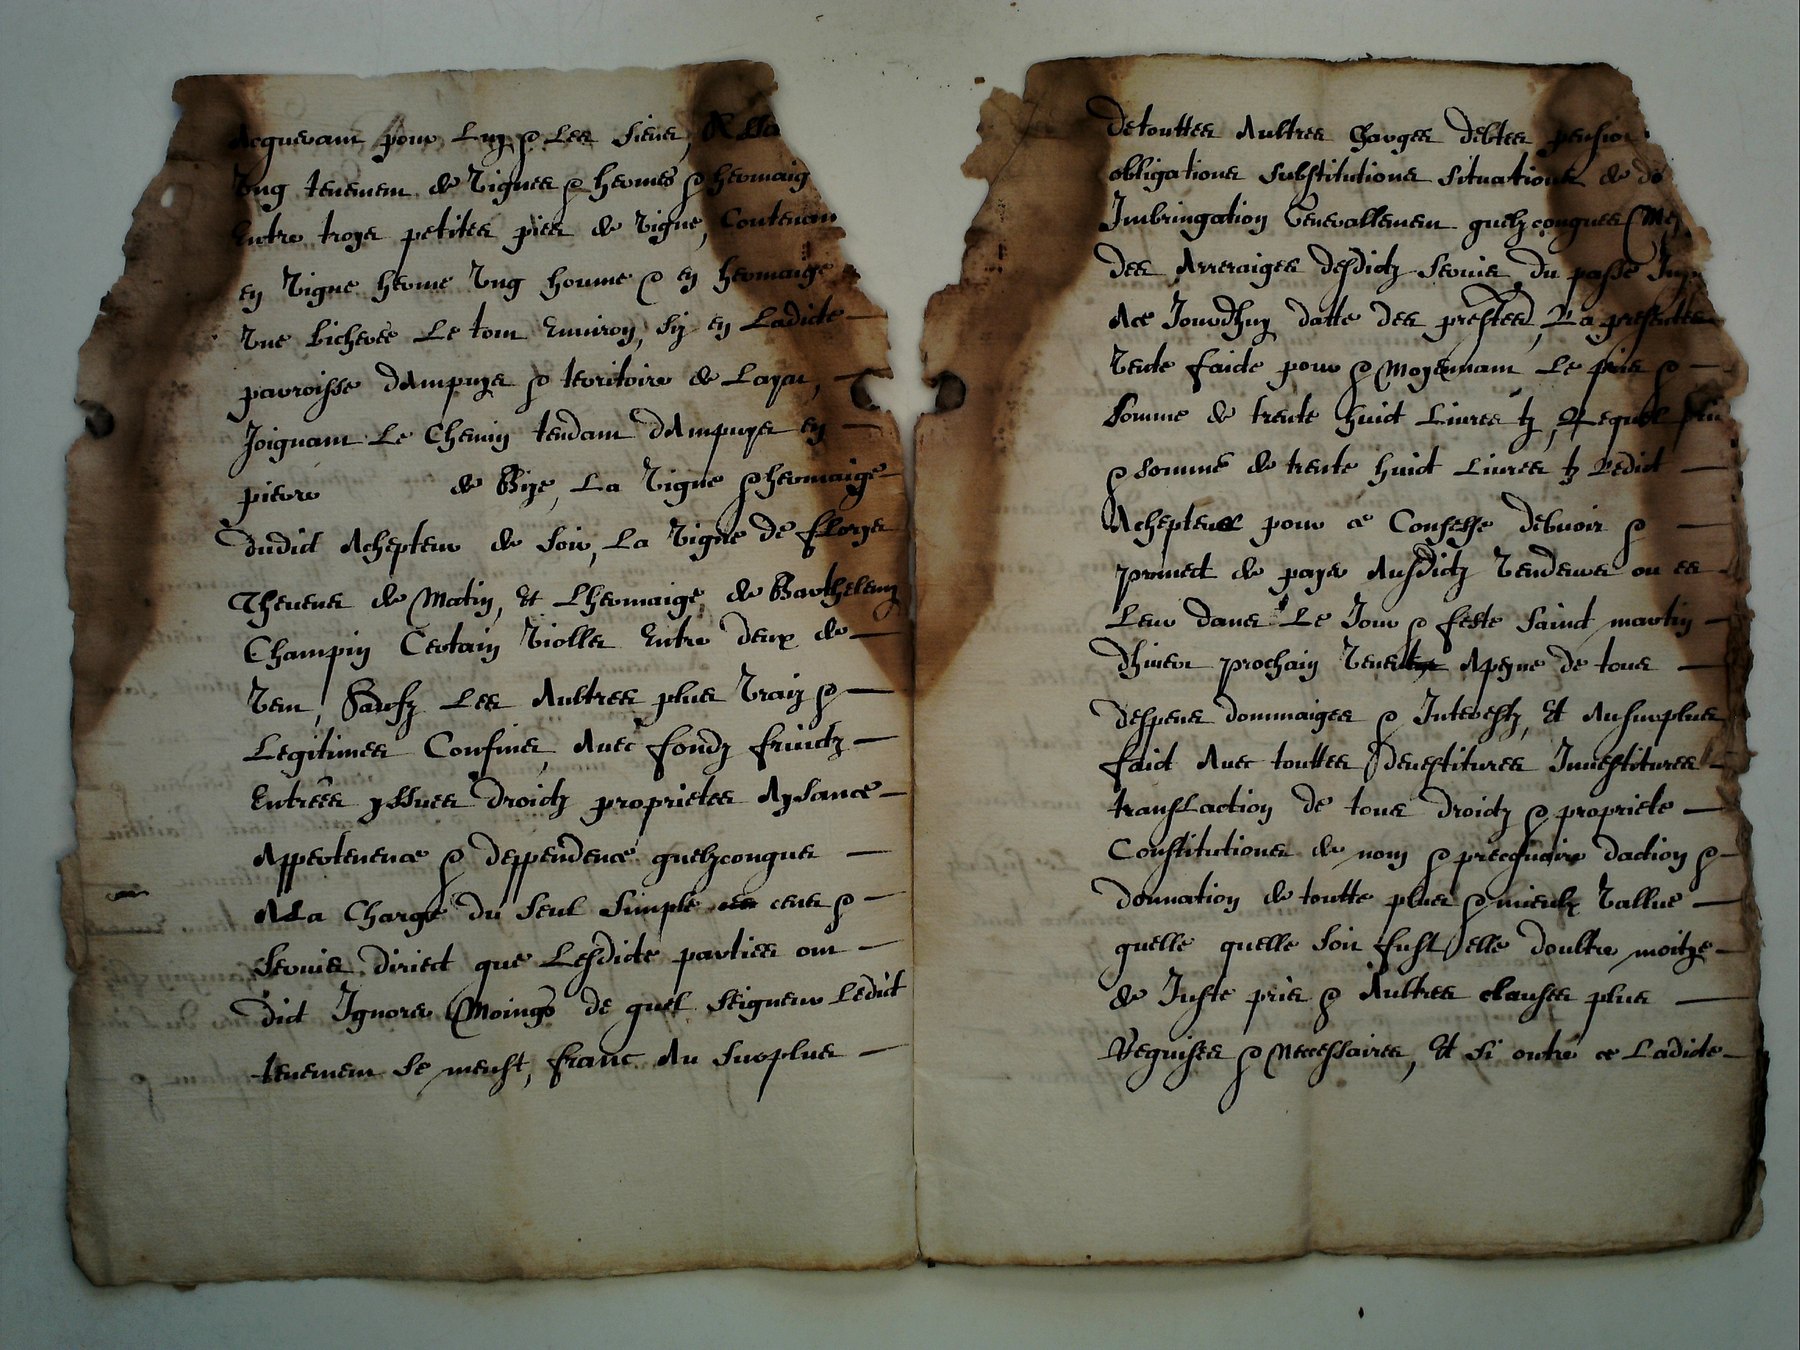 Acquerant pour Luy & Les siens,
Ung tenement de Vignes & hermes & hermaig
Entre troys petites pies de vigne, Contenan
en Vigne herme Ung homme & en hermaige
Une bicheree Le tout Environ, sis en Ladicte
parroisse dAmpuys & territoire de Layat,
Joignant Le Chemin tendant dAmpuys en
pierre de Bize, La Vigne & hermaige
dudict Achepteur de soir, La Vigne de fleorys
Thevenes de Matin, Et Lhermaige de Barthelemy
Champin Certain Viollet Entre deux de
Vent, Saufz Les Aultres plus Vraiz &
Legitimes Confins, Avec fondz fruictz
Entrees yssues droictz proprietes Aysance
Appertenence & deppendence quelzconques
A La Charge du seul simple cens &
servis direct que Lesdicte parties ont
dict Ignorer Moings de quel seigneur Ledict
tenement se meust, franc Au surplus
de touttes Aultres Charges debtes pension
obligations substitutions situations de do
Imbringation Generallement quelzconques
des Arreraiges desdictz servis du passe
Ace Jourdhuy datte des prestes, La presente
Vente faicte pour & Moyennant Le pris &
somme de trente huict Livres tz, Lequel
& somme de trente huict Livres tz Ledict
Achepteur pour ce Confesse debvoir &
promect de payer Ausdictz Vendeurs ou es
Leur dans Le Jour & feste saint martin
dhiver prochain Apeyne de tous
despens dommaiges & Interestz, Et Ausurplus
faict Avec touttes devestitures Investitures
translaction de tous droictz & propriete
Constitutions de nom & precquaire daction &
donnation de toutte plus & mieulx Vallue
quelle quelle soit fust elle doultre moitye
de Juste pris & Aultres clauses plus
Requises & Necessaires, Et si outre ce Ladicte